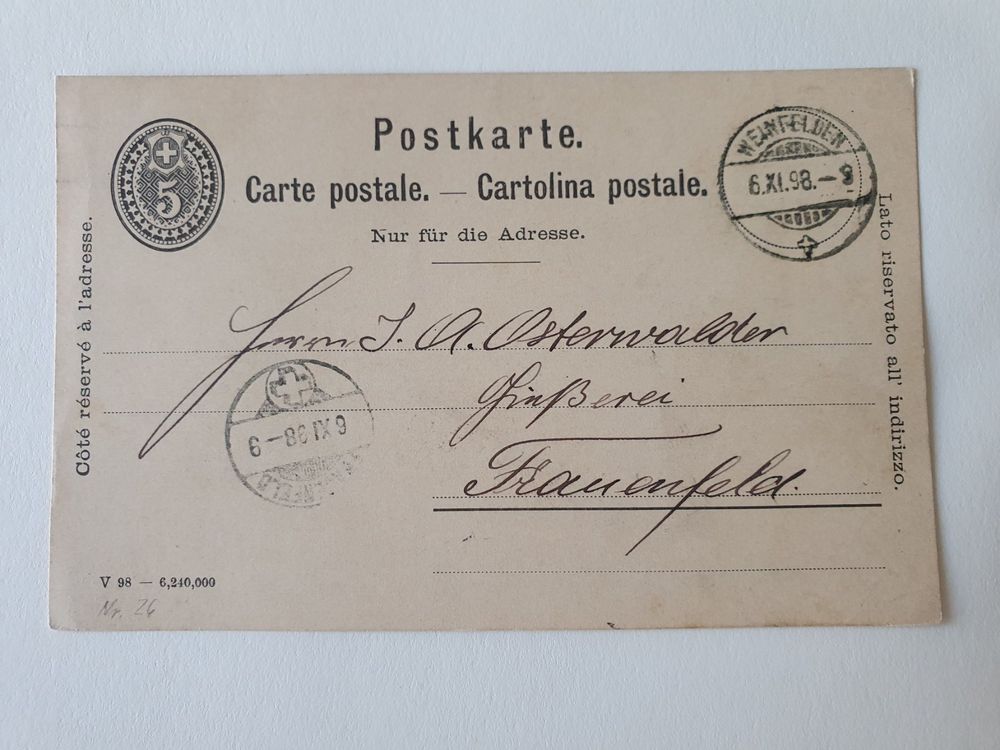 5
Postkarte.
Carte postale. — Cartolina postale.
Nur für die Adresse.
WEINFELDEN
6.XI.98.–8
Côté réservé à l'adresse.
Lato riservato all' indirizzo.
Herrn J. A. Osterwalder
Gießerei
Frauenfeld.
6 XI 98–9
V 98 — 6,240,000
Nr. 26